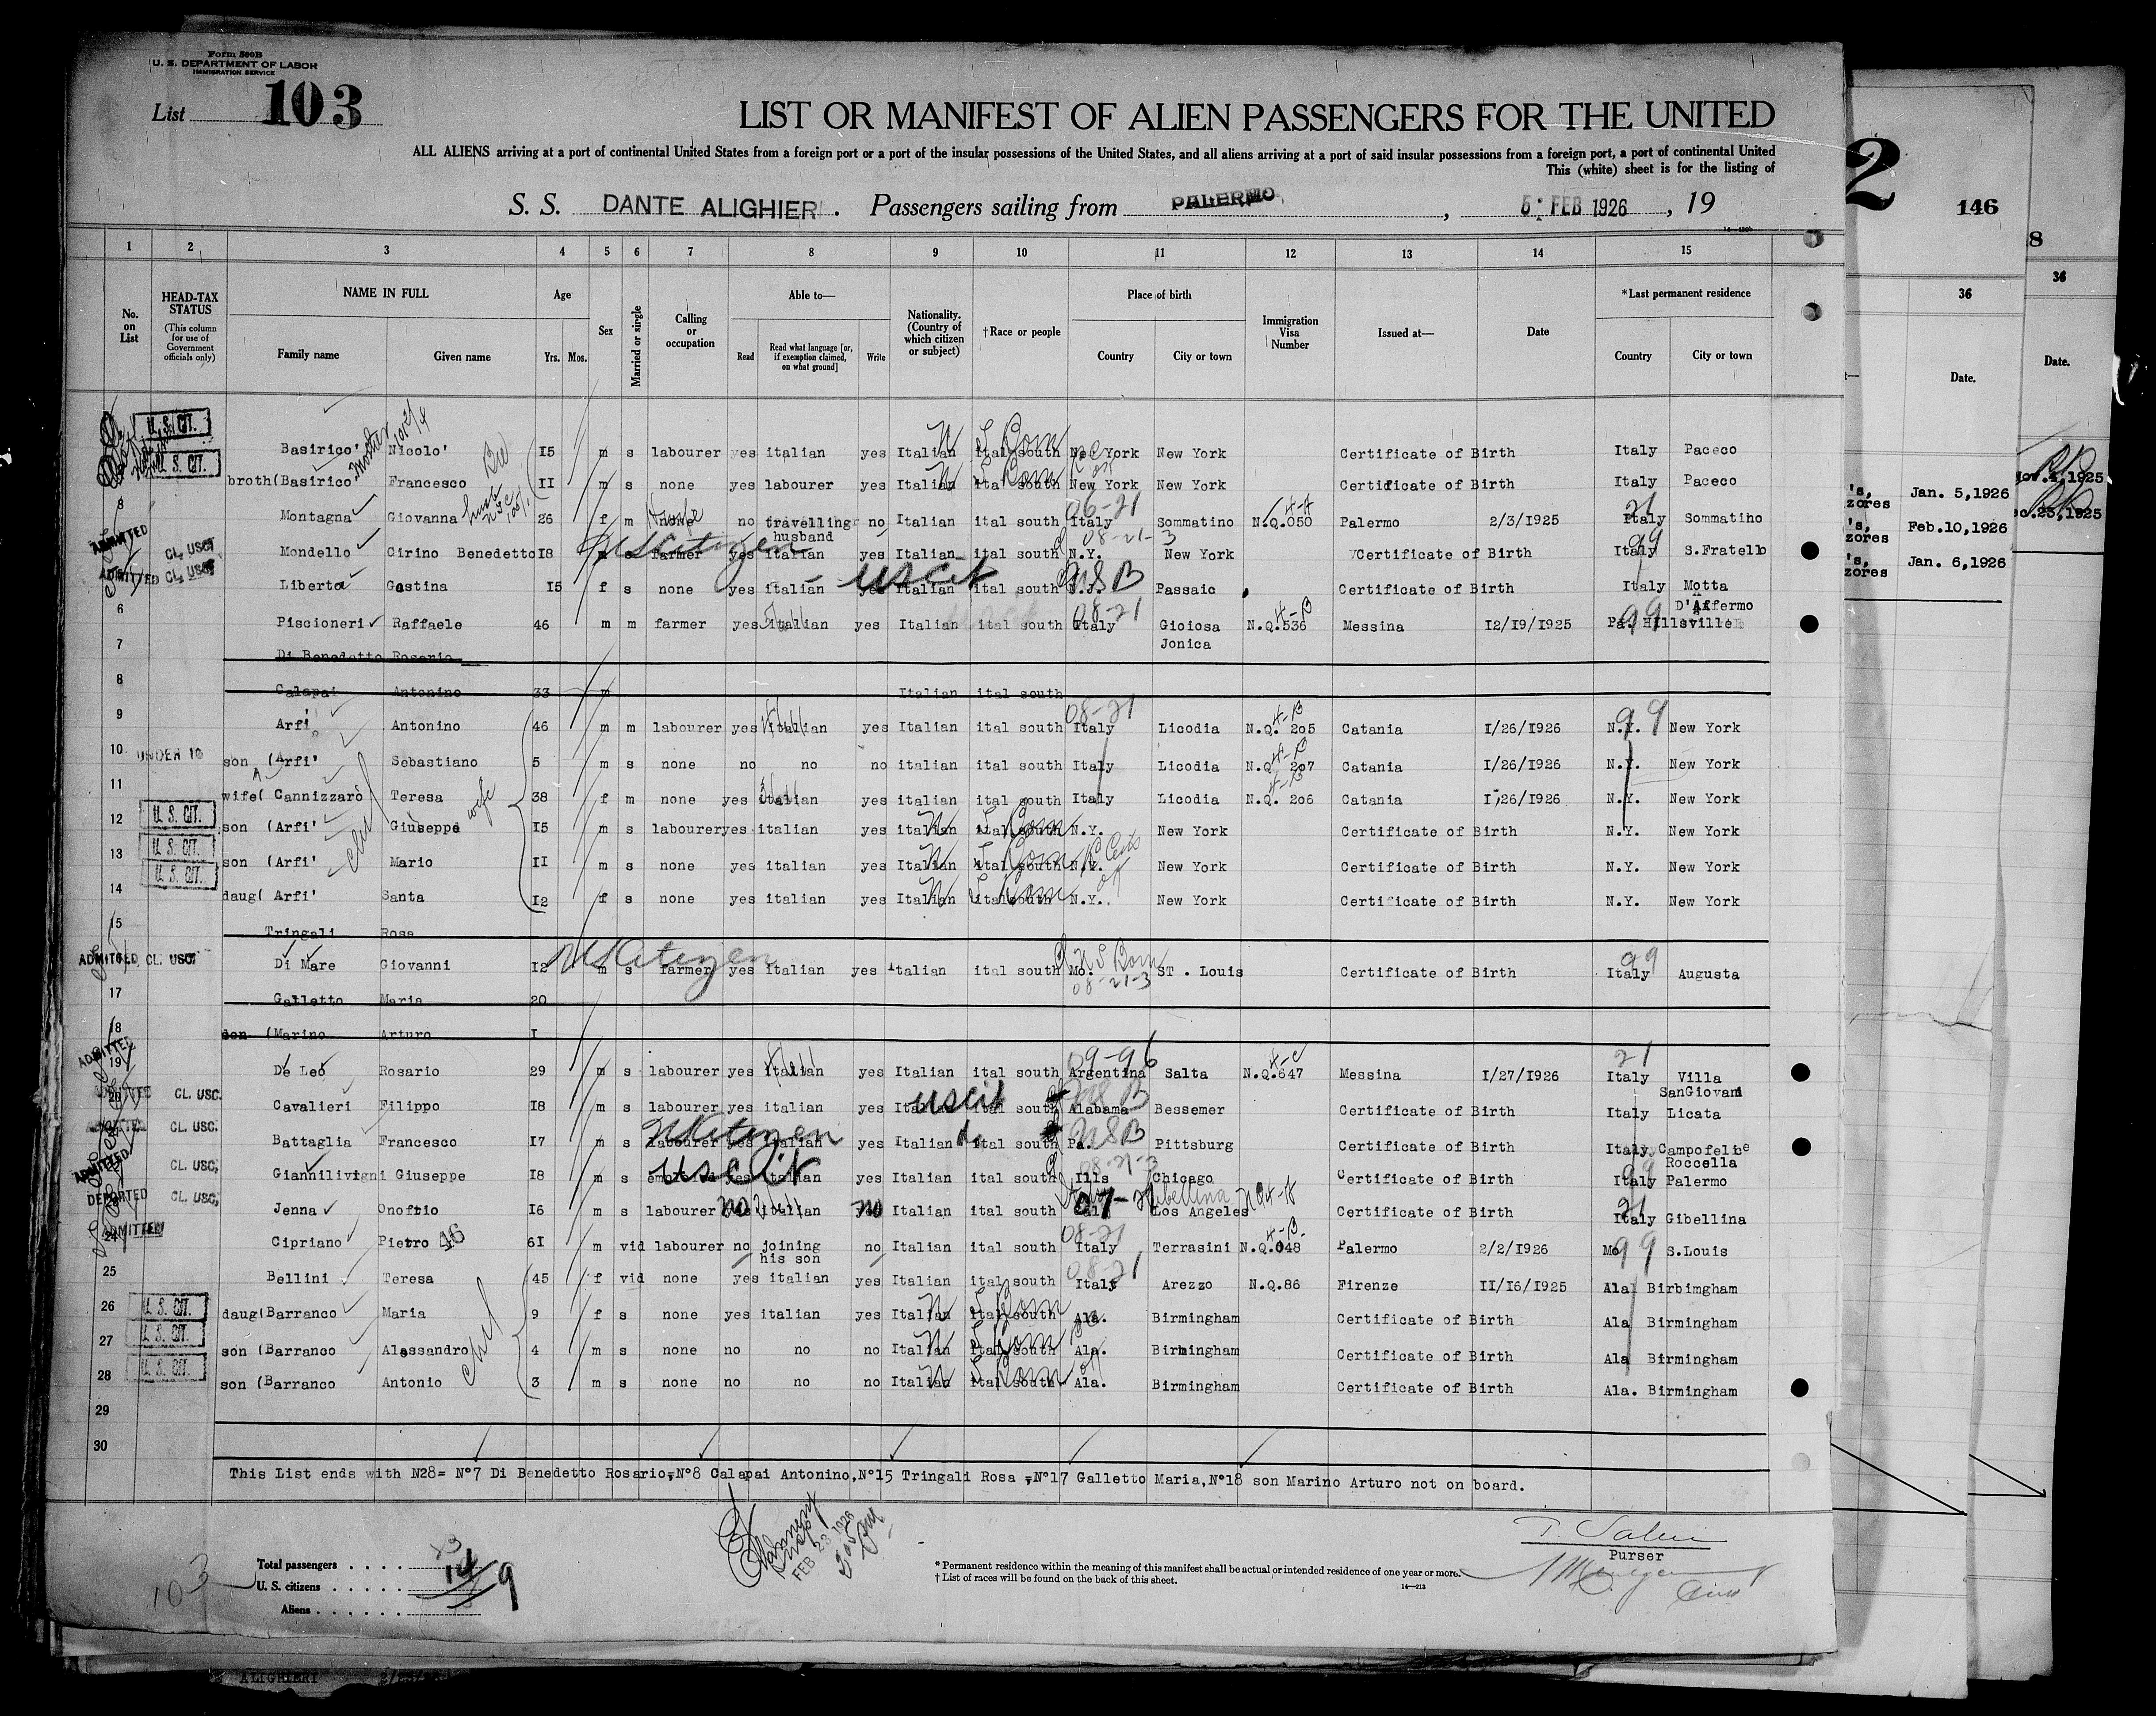 Form 500B
U. S. DEPARTMENT OF LABOR
IMMIGRATION SERVICE
List 103
LIST OR MANIFEST OF ALIEN PASSENGERS FOR THE UNITED
ALL ALIENS arriving at a port of continental United States from a foreign port or a port of the insular possessions of the United States, and all aliens arriving at a port of said insular possessions from a foreign port, a port of continental United
This (white) sheet is for the listing of
S. S. DANTE ALIGHIERI. Passengers sailing from PALERMO, 5 FEB 1926, 19
2
146
8
1 2 3 4 5 6 7 8 9 10 11 12 13 14 15
36
36
No. on List
HEAD-TAX STATUS (This column for use of Government officials only)
NAME IN FULL
Family name Given name
Age
Yrs. Mos.
Sex
Married or single
Calling or occupation
Able to—
Read Read what language [or, if exemption claimed, on what ground] Write
Nationality. (Country of which citizen or subject)
†Race or people
Place of birth
Country City or town
Immigration Visa Number
Issued at—
Date
*Last permanent residence
Country City or town
Date.
Date.
U. S. CIT. Basirico' Nicolo' 15 m s labourer yes italian yes Italian ital south New York New York Certificate of Birth Italy Paceco
U. S. CIT. broth(Basirico Francesco 11 m s none yes labourer yes Italian ital south New York New York Certificate of Birth Italy Paceco
Montagna Giovanna 26 f m none no travelling husband no Italian ital south Italy Sommatino N.Q.050 Palermo 2/3/1925 Italy Sommatino
ADMITTED CL. USC. Mondello Cirino Benedetto 18 m s farmer yes italian yes Italian ital south N.Y. New York Certificate of Birth Italy S.Fratello
ADMITTED CL. USC. Liberta Gastina 15 f s none yes italian yes Italian ital south N.J. Passaic Certificate of Birth Italy Motta D'Affermo
6 Piscioneri Raffaele 46 m m farmer yes italian yes Italian ital south Italy Gioiosa Jonica N.Q.536 Messina 12/19/1925 Pa. Hillsville
7 Di Benedetto Rosario
8 Calapai Antonino 33 m Italian ital south
9 Arfi' Antonino 46 m m labourer yes italian yes Italian ital south Italy Licodia N.Q. 205 Catania 1/26/1926 N.Y. New York
10 UNDER 16 son (Arfi' Sebastiano 5 m s none no no no italian ital south Italy Licodia N.Q. 207 Catania 1/26/1926 N.Y. New York
11 wife( Cannizzarò Teresa 38 f m none yes italian yes italian ital south Italy Licodia N.Q. 206 Catania 1/26/1926 N.Y. New York
12 U. S. CIT. son (Arfi' Giuseppe 15 m s labourer yes italian yes italian ital south N.Y. New York Certificate of Birth N.Y. New York
13 U. S. CIT. son (Arfi' Mario 11 m s none yes italian yes Italian ital south N.Y. New York Certificate of Birth N.Y. New York
14 U. S. CIT. daug( Arfi' Santa 12 f s none yes italian yes Italian ital south N.Y. New York Certificate of Birth N.Y. New York
15 Tringali Rosa
ADMITTED CL. USC. Di Mare Giovanni 12 m s farmer yes italian yes italian ital south Mo. ST. Louis Certificate of Birth Italy Augusta
US Citizen
17 Galletto Maria 20
18 son (Marino Arturo 1
ADMITTED 19 De Leo Rosario 29 m s labourer yes italian yes Italian ital south Argentina Salta N.Q.647 Messina 1/27/1926 Italy Villa SanGiovani
ADMITTED CL. USC. Cavalieri Filippo 18 m s labourer yes italian yes Italian ital south Alabama Bessemer Certificate of Birth Italy Licata
ADMITTED CL. USC. Battaglia Francesco 17 m s labourer yes italian yes Italian ital south Pa. Pittsburg Certificate of Birth Italy Campofelice Roccella
ADMITTED CL. USC. Giannilivigni Giuseppe 18 m s yes italian yes Italian ital south Ills Chicago Certificate of Birth Italy Palermo
DEPORTED CL. USC. Jenna Onofrio 16 m s labourer no italian no Italian ital south Cal Los Angeles Certificate of Birth Italy Gibellina
ADMITTED 24 Cipriano Pietro 61 m vid labourer no joining his son no Italian ital south Italy Terrasini N.Q.048 Palermo 2/2/1926 Mo S.Louis
25 Bellini Teresa 45 f vid none yes italian yes Italian ital south Italy Arezzo N.Q.86 Firenze 11/16/1925 Ala Birbimgham
26 U. S. CIT. daug(Barranco Maria 9 f s none yes italian yes Italian ital south Ala. Birmingham Certificate of Birth Ala Birmingham
27 U. S. CIT. son (Barranco Alessandro 4 m s none no no no Italian ital south Ala. Birmingham Certificate of Birth Ala Birmingham
28 U. S. CIT. son (Barranco Antonio 3 m s none no no no Italian ital south Ala. Birmingham Certificate of Birth Ala. Birmingham
29
30
This List ends with N28= N°7 Di Benedetto Rosario,N°8 Calapai Antonino,N°15 Tringali Rosa ,N°17 Galletto Maria,N°18 son Marino Arturo not on board.
Nov.4,1925
Jan. 5,1926
zores
Feb.10,1926
zores
Jan. 6,1926
zores
FEB 23 1926
Purser
Total passengers
U. S. citizens 14
Aliens 9
103
* Permanent residence within the meaning of this manifest shall be actual or intended residence of one year or more.
† List of races will be found on the back of this sheet.
14—213
ALIGHIERI